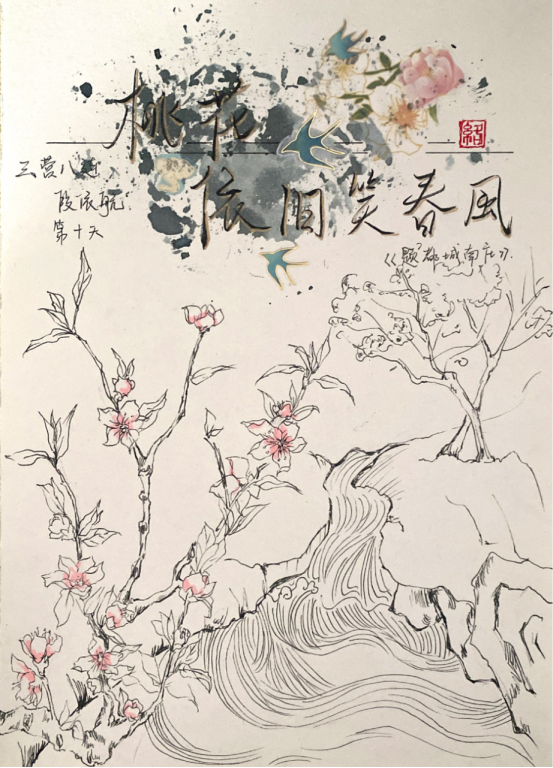 桃花
依旧笑春风
《题都城南庄》.
三营八连
段依航
第十天